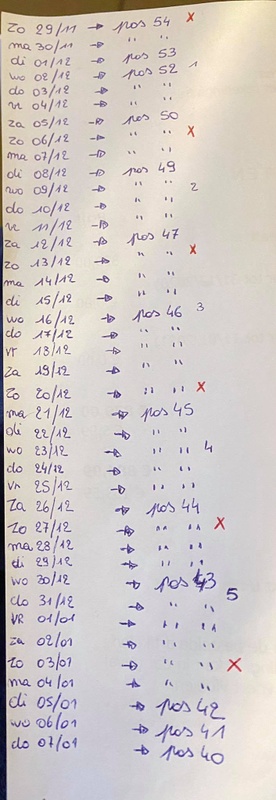 zo 29/11 → pos 54 x
ma 30/11 → " "
di 01/12 → pos 53
wo 02/12 → pos 52 1
do 03/12 → " "
vr 04/12 → " "
za 05/12 → pos 50
zo 06/12 → " " x
ma 07/12 → " "
di 08/12 → pos 49
wo 09/12 → " " 2
do 10/12 → " "
vr 11/12 → " "
za 12/12 → pos 47
zo 13/12 → " " x
ma 14/12 → " "
di 15/12 → " "
wo 16/12 → pos 46 3
do 17/12 → " "
vr 18/12 → " "
za 19/12 → " "
zo 20/12 → " " x
ma 21/12 → pos 45
di 22/12 → " "
wo 23/12 → " " 4
do 24/12 → " "
vr 25/12 → " "
za 26/12 → pos 44
zo 27/12 → " " x
ma 28/12 → " "
di 29/12 → " "
wo 30/12 → pos 43
do 31/12 → " " 5
vr 01/01 → " "
za 02/01 → " "
zo 03/01 → " " x
ma 04/01 → " "
di 05/01 → pos 42
wo 06/01 → pos 41
do 07/01 → pos 40